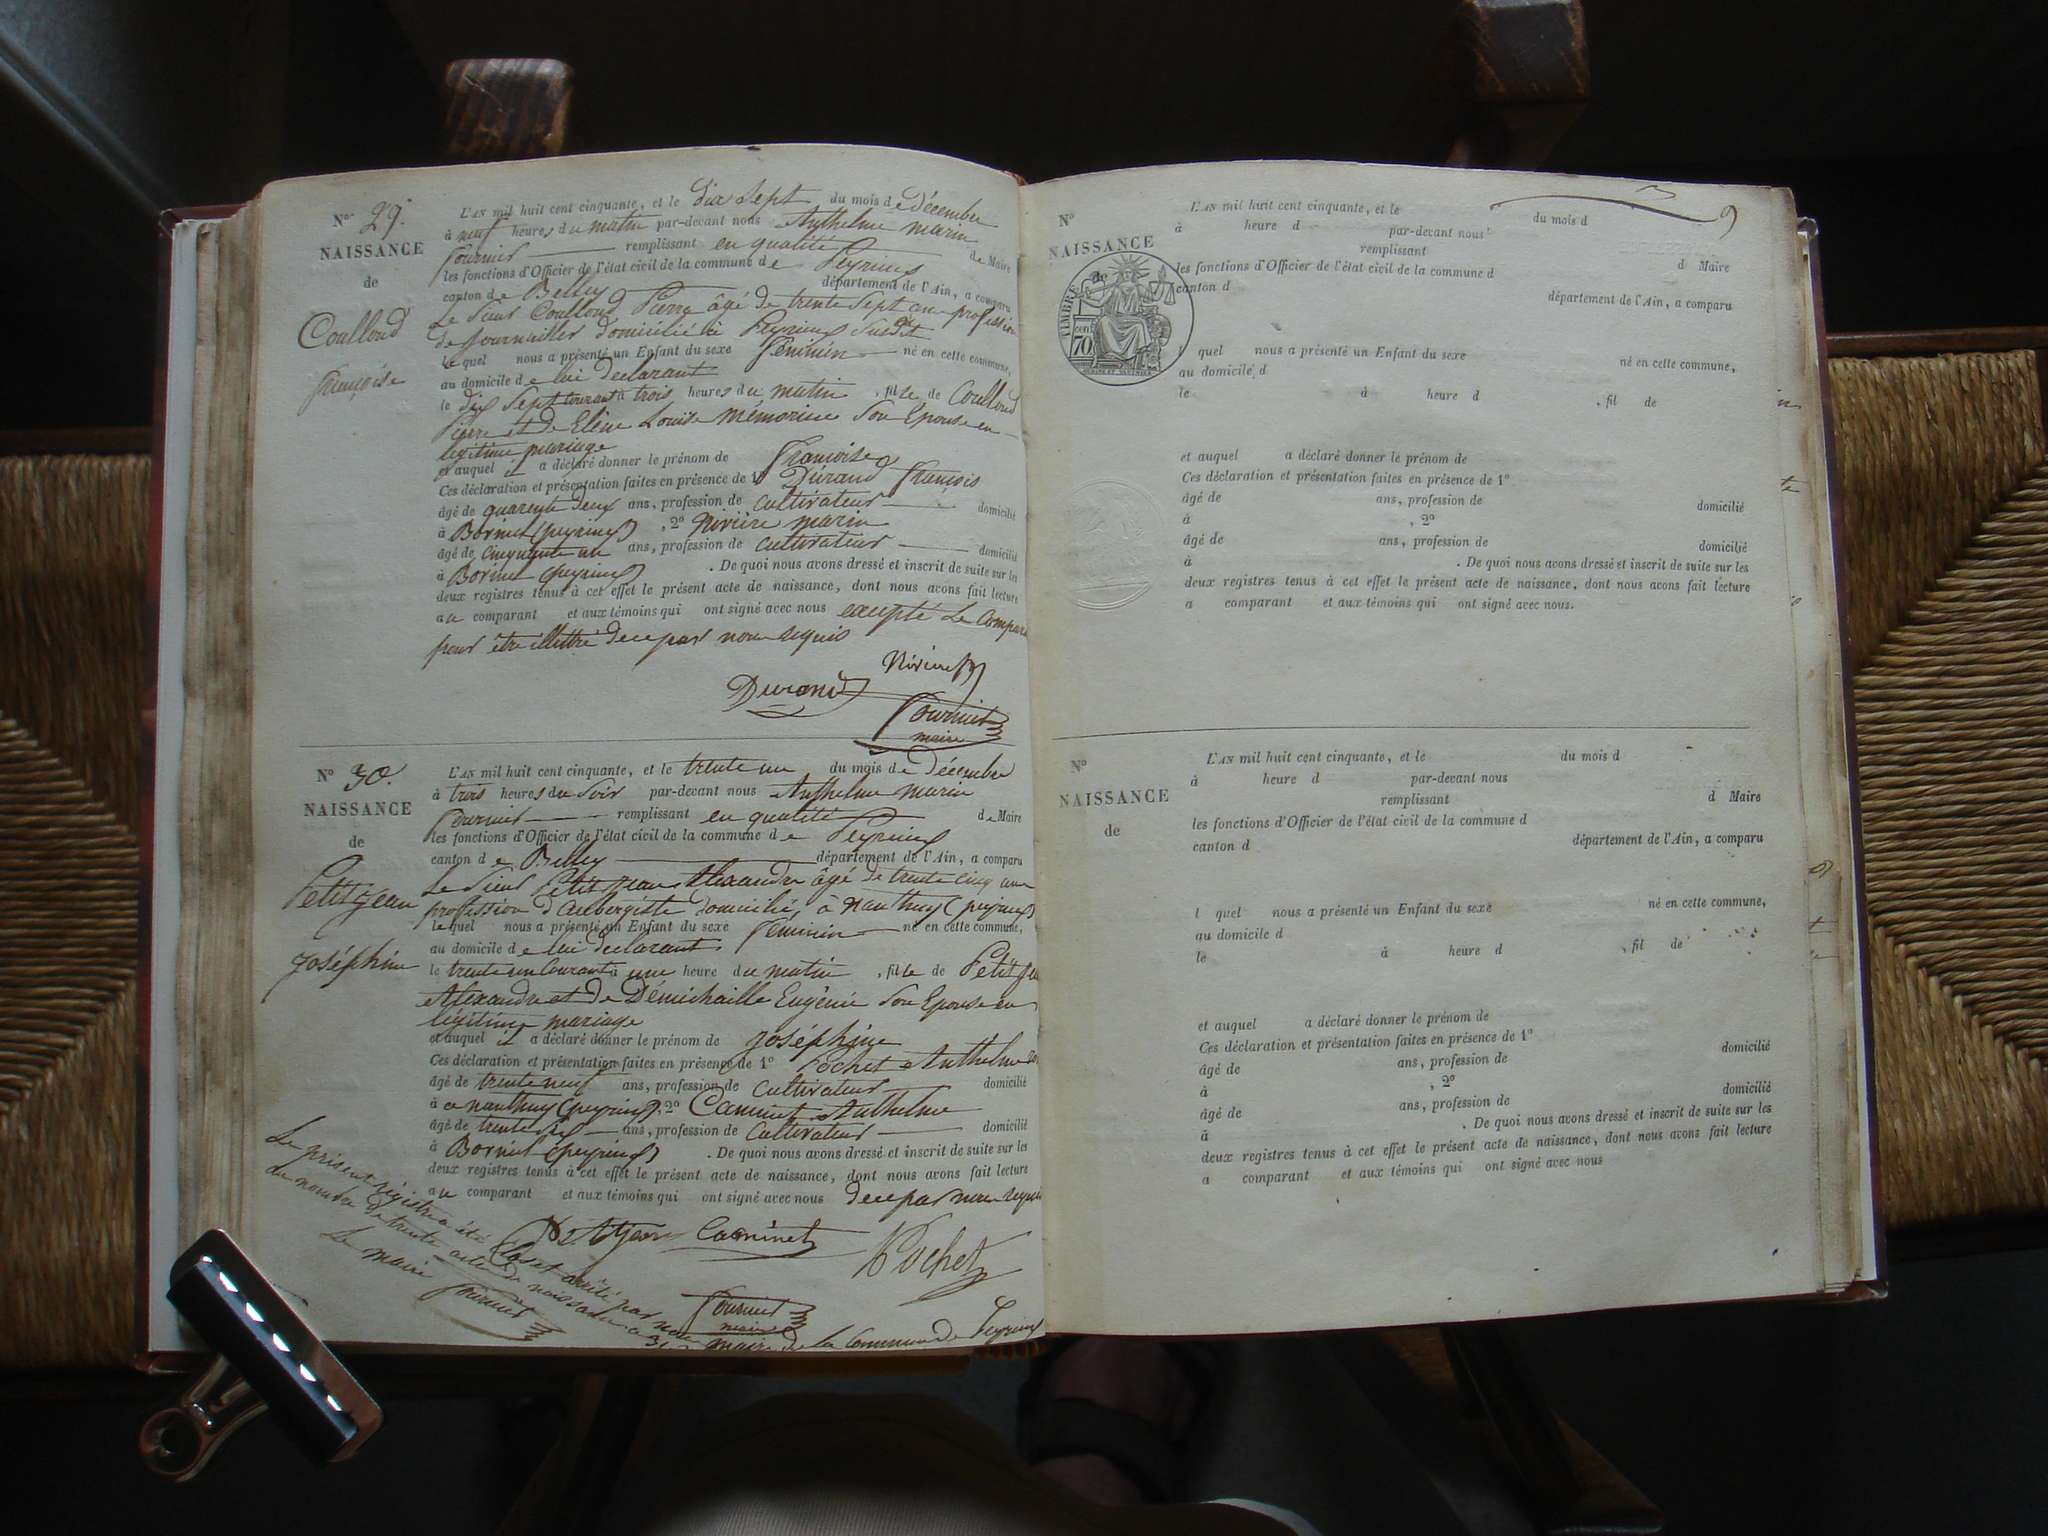 N° 29.
NAISSANCE
de
Coulloud
françoise
L'AN mil huit cent cinquante, et le dix Sept du mois de Décembre
à neuf heures du matin par-devant nous Anthelme marin
fournier remplissant en qualité de Maire
les fonctions d'Officier de l'état civil de la commune de Peyrieu
canton de Belley département de l'Ain, a comparu
Le Sieur Coulloud Pierre âgé de trente Sept an profession
de Journallier domicilié à Peyrieu Susdit
lequel nous a présenté un Enfant du sexe féminin né en cette commune,
au domicile de lui declarant
le dix Sept courant à trois heures du matin, fille de Coulloud
Pierre et de Elène Louise Mémorine Son Epouse en
légitime mariage
et auquel il a déclaré donner le prénom de françoise
Ces déclaration et présentation faites en présence de 1° Durand françois
âgé de quarente deux ans, profession de cultivateur domicilié
à Borinet (peyrieu), 2° Rivière marin
âgé de cinquante un ans, profession de cultivateur domicilié
à Borinet (peyrieu). De quoi nous avons dressé et inscrit de suite sur les
deux registres tenus à cet effet le présent acte de naissance, dont nous avons fait lecture
au comparant et aux témoins qui ont signé avec nous excepté Le Compara
pour être illettré de ce par nous requis
Durand
fournier
maire
N° 30.
NAISSANCE
de
Petitjean
Joséphine
L'AN mil huit cent cinquante, et le trente un du mois de Décembre
à trois heures du Soir par-devant nous Anthelme marin
fournier remplissant en qualité de Maire
les fonctions d'Officier de l'état civil de la commune de Peyrieu
canton de Belley département de l'Ain, a comparu
Le Sieur Petitjean Alexandre âgé de trente cinq an
profession d'aubergiste domicilié, à nanthuy (peyrieu)
lequel nous a présenté un Enfant du sexe féminin né en cette commune,
au domicile de lui declarant
le trente un courant à une heure du matin, fille de Petit Jea
Alexandre et de Démichaille Eugénie Son Epouse en
légitime mariage
et auquel il a déclaré donner le prénom de Joséphine
Ces déclaration et présentation faites en présence de 1° Pochet Anthelme
âgé de trente neuf ans, profession de cultivateur domicilié
à nanthuy (peyrieu), 2° Caminet Anthelme
âgé de trente six ans, profession de cultivateur domicilié
à Borinet (peyrieu). De quoi nous avons dressé et inscrit de suite sur les
deux registres tenus à cet effet le présent acte de naissance, dont nous avons fait lecture
au comparant et aux témoins qui ont signé avec nous de ce par nous requis
Caminet
Pochet
fournier
maire
Le présent régistre a été Clos et arrêté par nous maire de la Commune de Peyrieu
au nombre de trente actes de naissance ce 31
Le maire
fournier
9
N°
NAISSANCE
TIMBRE
de
cen
70
L'AN mil huit cent cinquante, et le du mois d
à heure d par-devant nous
remplissant d Maire
les fonctions d'Officier de l'état civil de la commune d
canton d département de l'Ain, a comparu
l quel nous a présenté un Enfant du sexe né en cette commune,
au domicile d
le à heure d , fil de
et auquel a déclaré donner le prénom de
Ces déclaration et présentation faites en présence de 1°
âgé de ans, profession de domicilié
à , 2°
âgé de ans, profession de domicilié
à . De quoi nous avons dressé et inscrit de suite sur les
deux registres tenus à cet effet le présent acte de naissance, dont nous avons fait lecture
a comparant et aux témoins qui ont signé avec nous.
N°
NAISSANCE
de
L'AN mil huit cent cinquante, et le du mois d
à heure d par-devant nous
remplissant d Maire
les fonctions d'Officier de l'état civil de la commune d
canton d département de l'Ain, a comparu
l quel nous a présenté un Enfant du sexe né en cette commune,
au domicile d
le à heure d , fil de
et auquel a déclaré donner le prénom de
Ces déclaration et présentation faites en présence de 1°
âgé de ans, profession de domicilié
à , 2°
âgé de ans, profession de domicilié
à . De quoi nous avons dressé et inscrit de suite sur les
deux registres tenus à cet effet le présent acte de naissance, dont nous avons fait lecture
a comparant et aux témoins qui ont signé avec nous